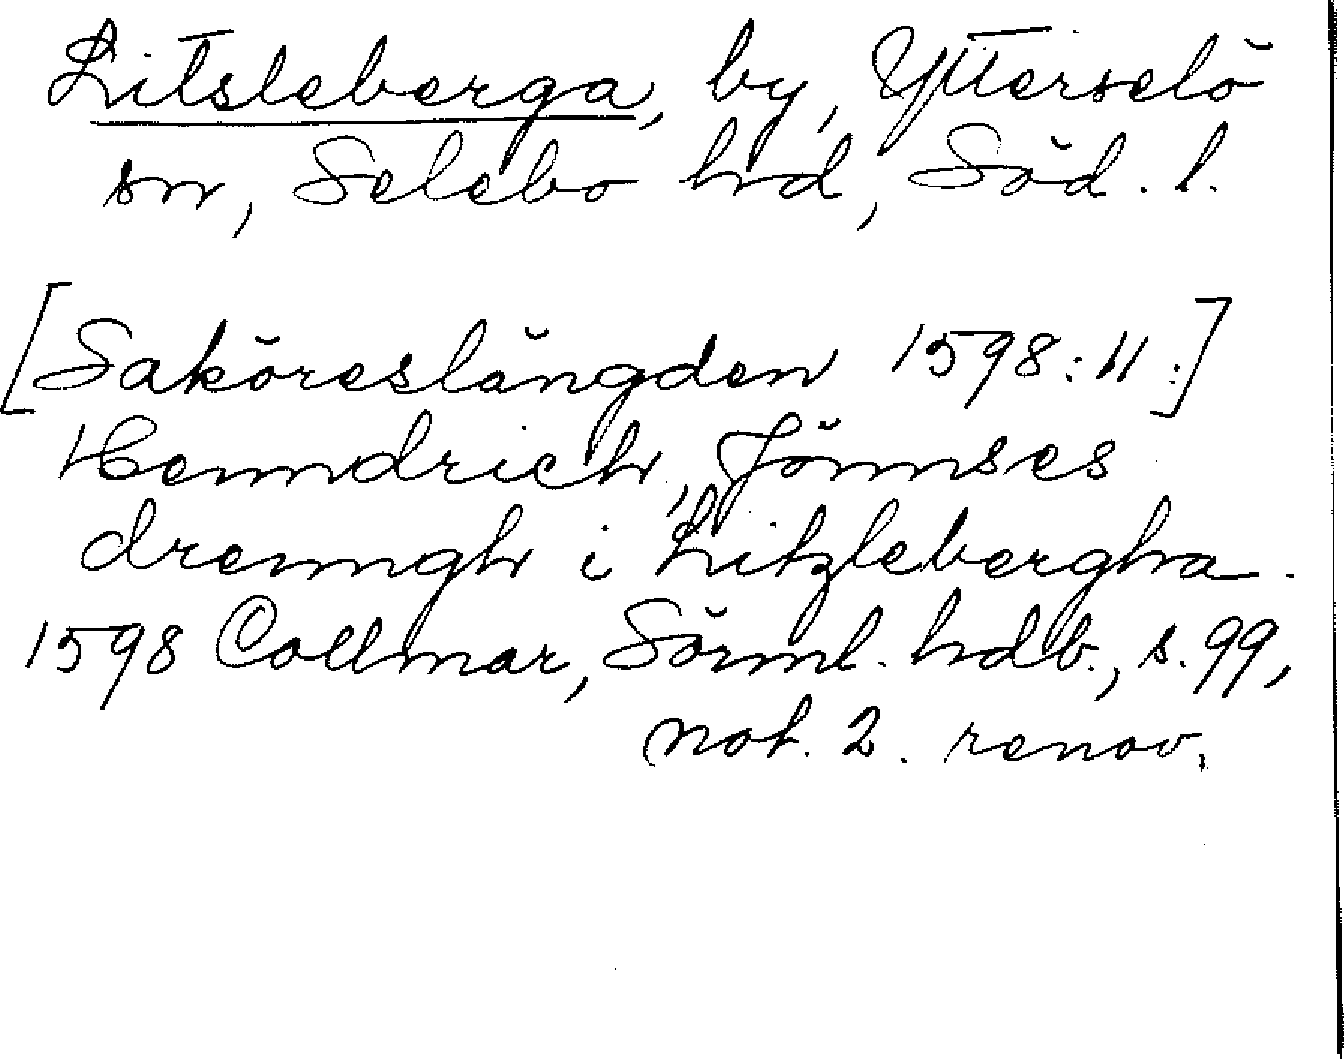 Litsleberga, by, Ytterselö
sn, Selebo hd, Söd. l.
[Saköreslängden 1598:11:]
Henndrich, Jönnses
drenngh i Litzlebergha.
1598 Collmar, Sörml. hdb., s. 99,
not. 2. renov.